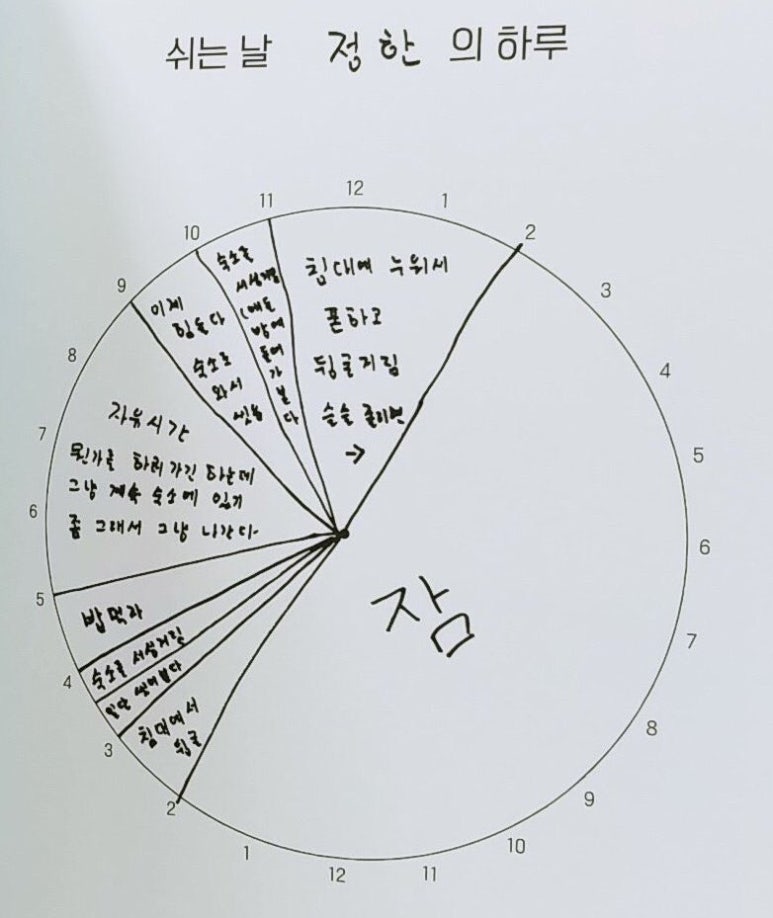 쉬는 날 정한 의 하루
12
1
2
3
4
5
6
7
8
9
10
11
12
1
2
3
4
5
6
7
8
9
10
11
침대에 누워서
폰하고
뒹굴거림
슬슬 졸리면
→
잠
침대에서
뒹굴
일단 씻어본다
숙소를 서성거림
밥먹자
자유시간
뭔가를 하러 가긴 하는데
그냥 계속 숙소에 있기
좀 그래서 그냥 나간다
이제
힘들다
숙소로
와서
씻음
숙소를
서성거림
(애들
방에
들어
가
본
다